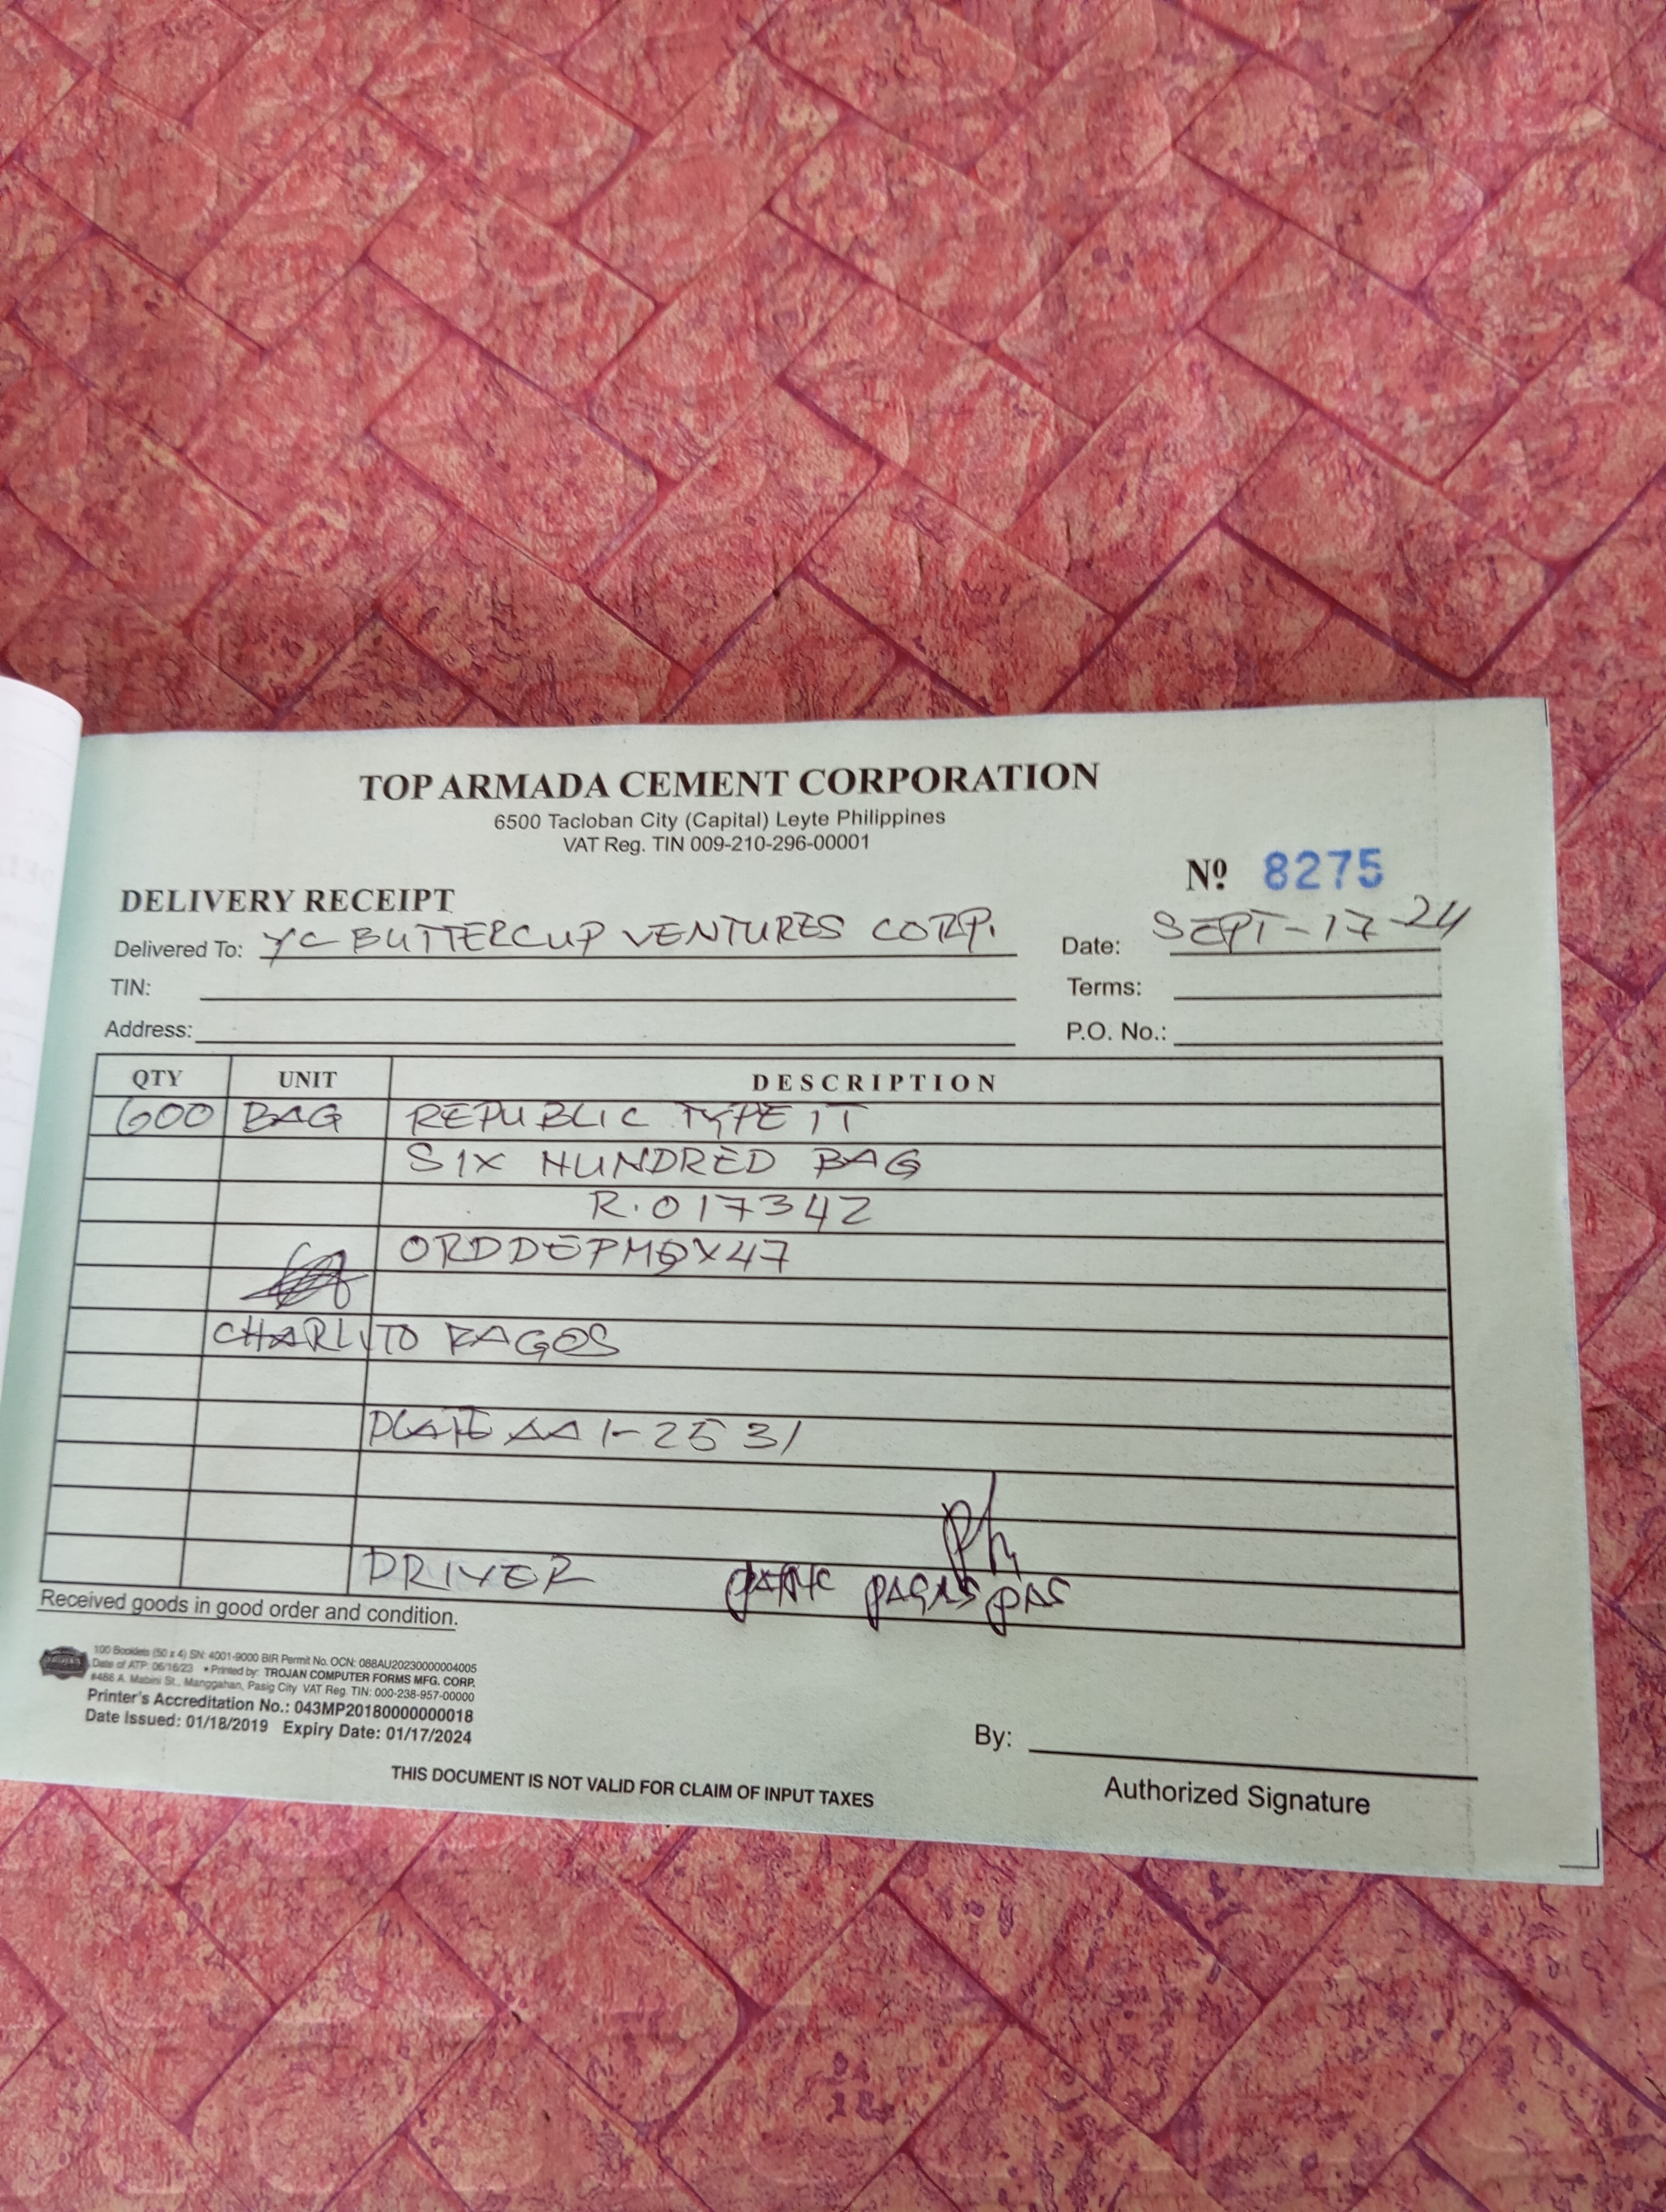 TOP ARMADA CEMENT CORPORATION
6500 Tacloban City (Capital) Leyte Philippines
VAT Reg. TIN 009-210-296-00001
Nº 8275
DELIVERY RECEIPT
Delivered To: YC BUTTERCUP VENTURES CORP. Date: SEPT-17-24
TIN: Terms:
Address: P.O. No.:
QTY UNIT DESCRIPTION
600 BAG REPUBLIC TYPE 1T
SIX HUNDRED BAG
R.017342
CHARLITO RAGOS
PLATE AA 1-2531
DRIVER
Received goods in good order and condition.
100 Booklets (50 x 4) SN: 4001-9000 BIR Permit No. OCN: 088AU20230000004005
Date of ATP: 06/16/23 *Printed by: TROJAN COMPUTER FORMS MFG. CORP.
#488 A. Mabini St., Manggahan, Pasig City VAT Reg. TIN: 000-238-957-00000
Printer's Accreditation No.: 043MP20180000000018
Date Issued: 01/18/2019 Expiry Date: 01/17/2024
By:
Authorized Signature
THIS DOCUMENT IS NOT VALID FOR CLAIM OF INPUT TAXES